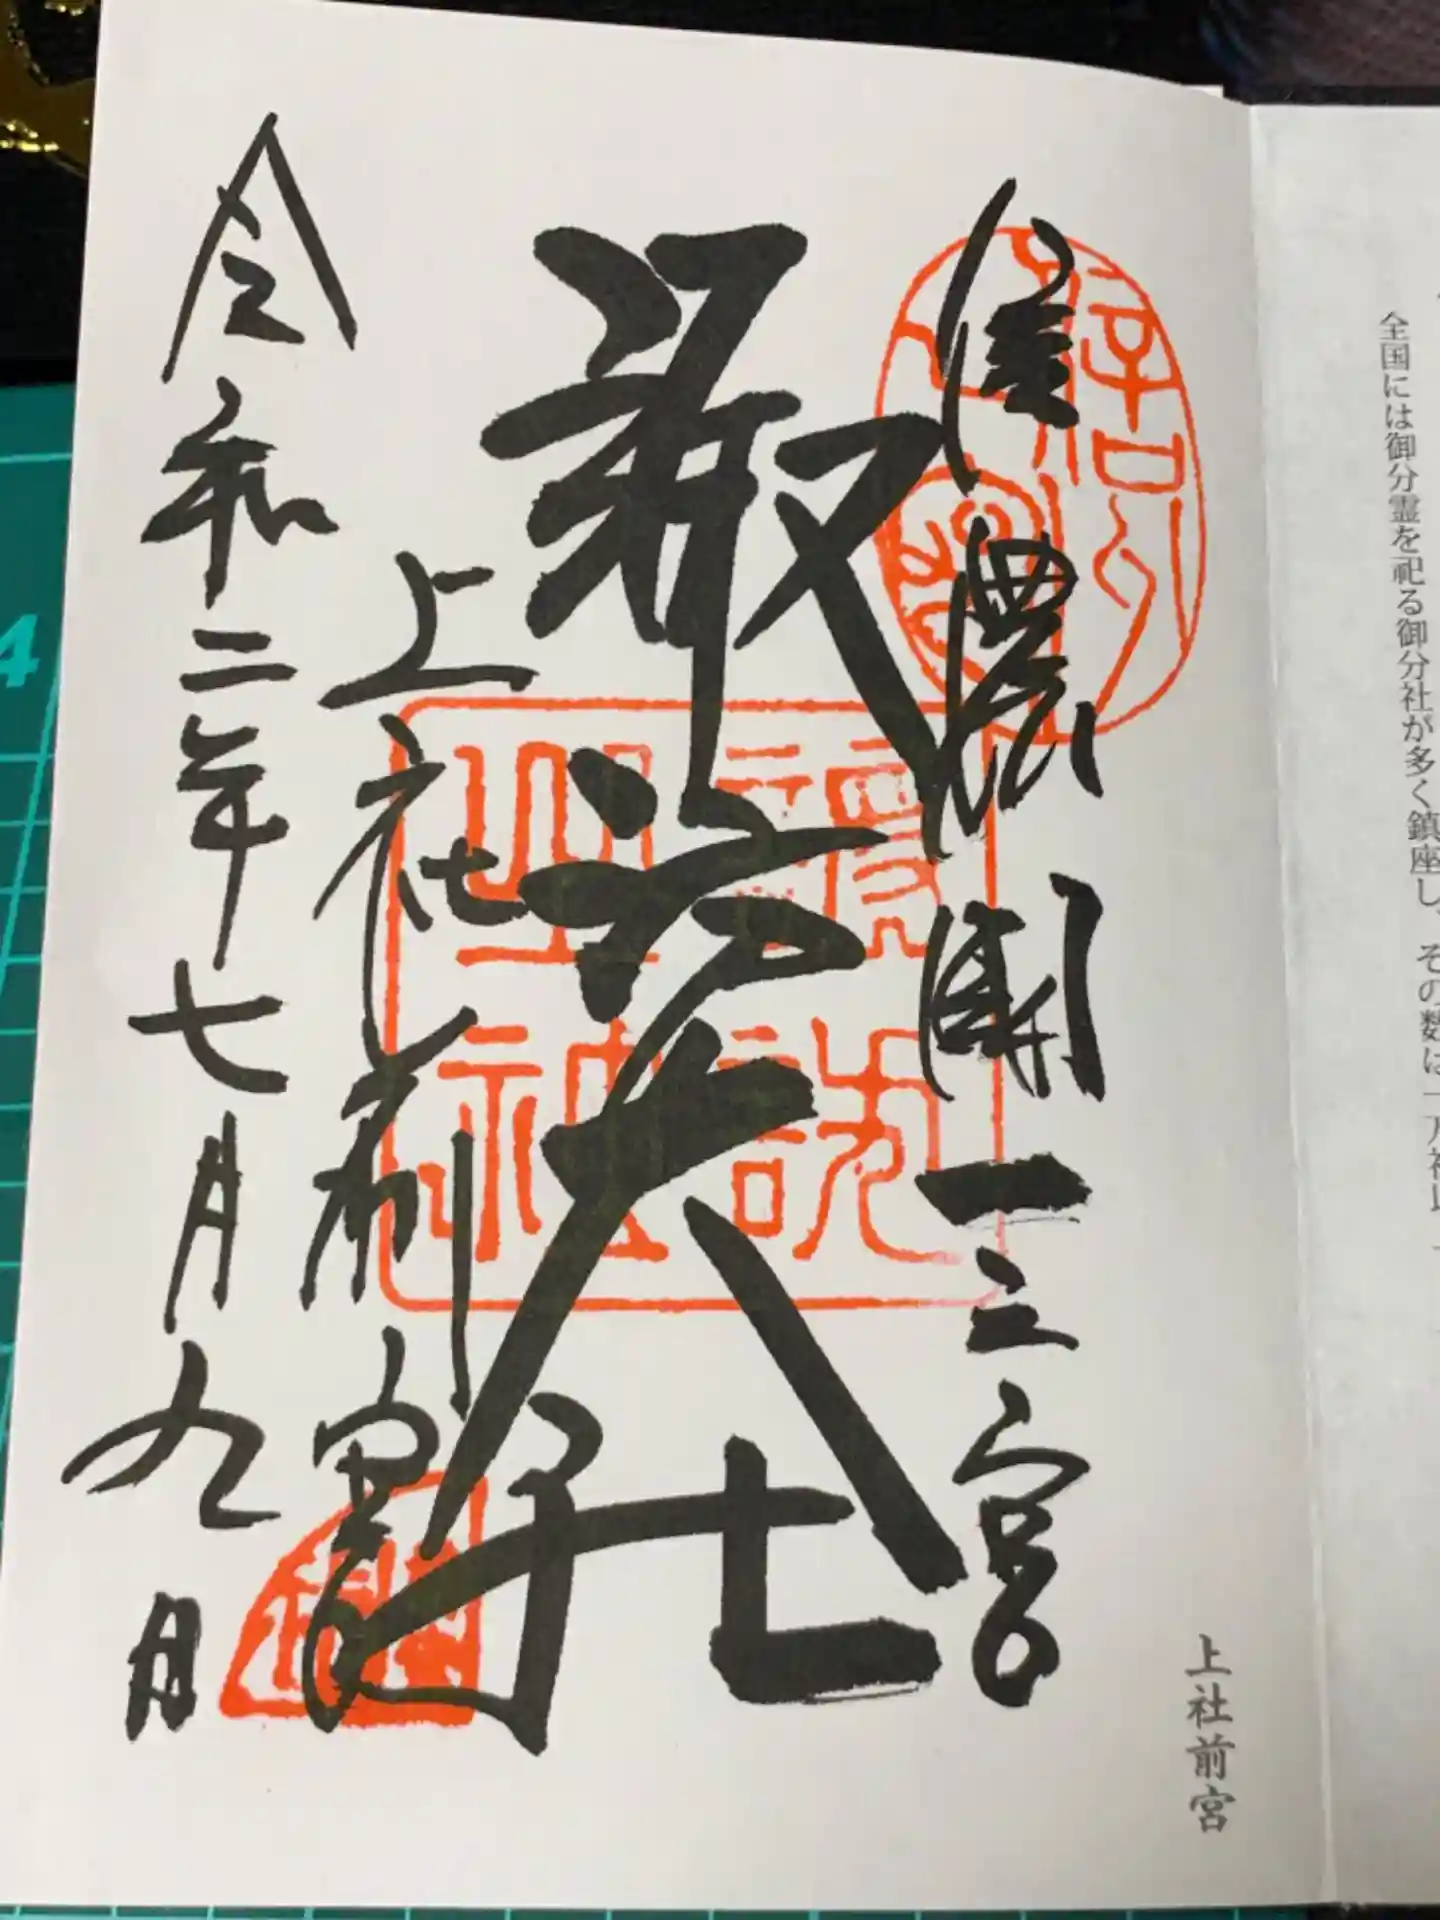 全国には御分霊を祀る御分社が多く鎮座し、その数は一万
上社前宮
信濃國一之宮
諏訪大社
上社前宮
令和二年七月九日